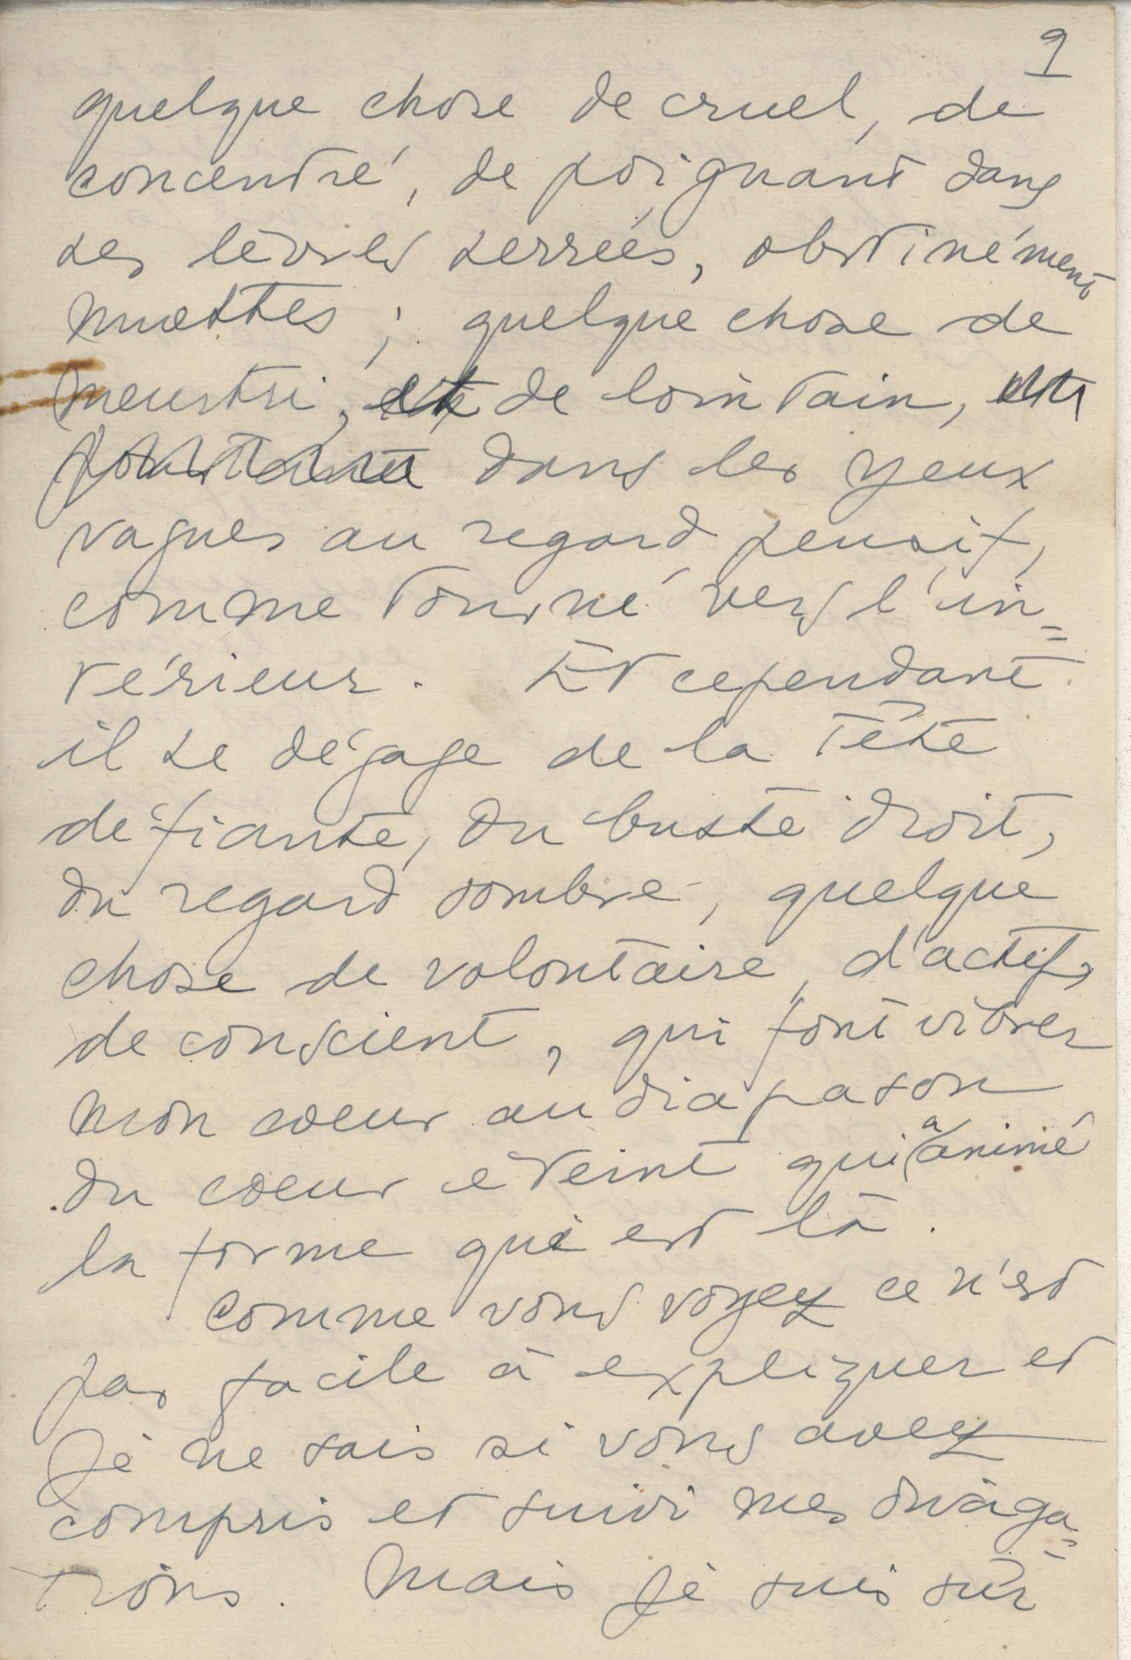 9
quelque chose de cruel, de
concentré, de poignant dans
les lèvres serrées, obstinément
muettes ; quelque chose de
meurtri, de lointain,
dans les yeux
vagues au regard pensif,
comme tourné vers l'in=
térieur. Et cependant
il se dégage de la tête
défiante, du buste droit,
du regard sombre, quelque
chose de volontaire, d'actif,
de conscient, qui font vibrer
mon coeur au diapason
du coeur éteint qui a animé
la forme qui est là.
Comme vous voyez ce n'est
pas facile à expliquer et
je ne sais si vous avez
compris et suivi mes divaga=
tions. Mais je suis sûr